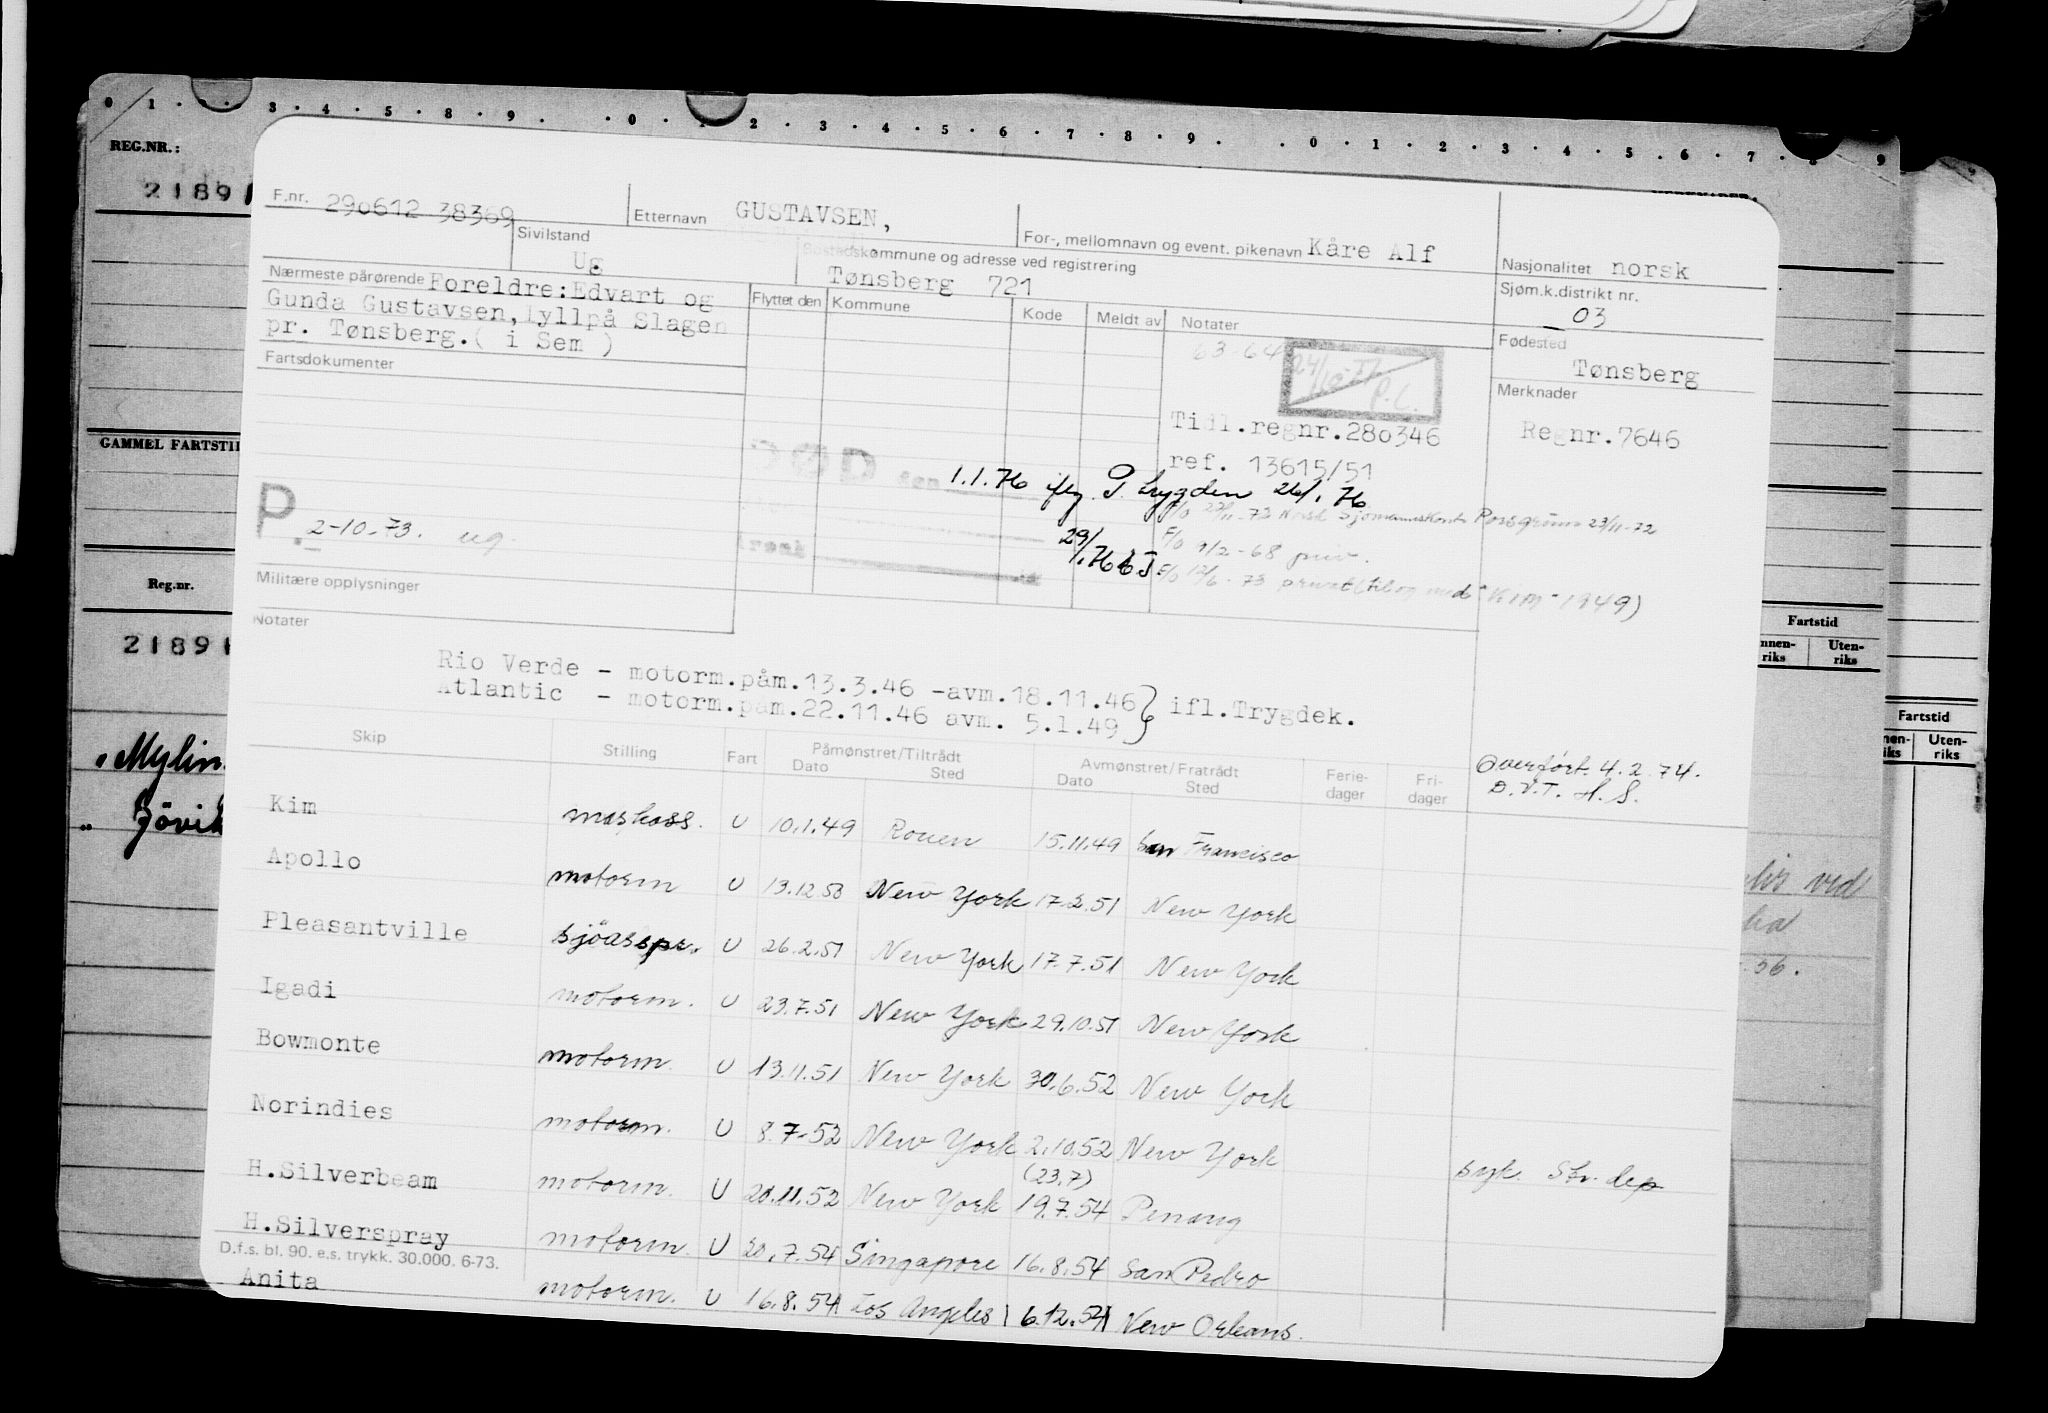 0 1 · 2 · 3 · 4 · 5 · 8 · 9 · · 0 · 1 2 · 3 · 4 · 5 · 6 · 7 · 8 · 9 · · 0 · 1 · 2 · 3 · 4 · 5 · 6 · 7 · 8 9
REG.NR.:
21891
F.nr. 290612 38369
Etternavn GUSTAVSEN,
For-, mellomnavn og event. pikenavn Kåre Alf
Nasjonalitet norsk
Sivilstand
Ug.
Bostedskommune og adresse ved registrering
Tønsberg 721
Sjøm.k.distrikt nr.
03
Nærmeste pårørende Foreldre:Edvart og
Gunda Gustavsen, Lyllpå Slagen
pr. Tønsberg.( i Sem )
Flyttet den Kommune Kode Meldt av Notater
Fødested
Tønsberg
63-64
24/10-71
P.L.
Fartsdokumenter
Merknader
Tidl.regnr.280346
Regnr.7646
ref. 13615/51
GAMMEL FARTSTI
DØD den 1.1.76 iflg. P. trygden 26/1 76
F/O 22/11-72 Norsk Sjømannskontr Porsgrunn 23/11-72
P. 2-10-73. ug.
29/1.76 F/O 9/2-68 priv.
F/O 12/6-73 privat (tilog med "KIM" 1949)
Militære opplysninger
Reg.nr.
Notater
21891
Fartstid
Innen-riks Uten-riks
Rio Verde - motorm.påm.13.3.46 -avm.18.11.46
Atlantic - motorm.påm.22.11.46 avm. 5.1.49 } ifl.Trygdek.
Fartstid
Uten-riks
Skip Stilling Fart Påmønstret/Tiltrådt Avmønstret/Fratrådt Ferie-dager Fri-dager
Dato Sted Dato Sted
Overført. 4.2.74.
D.V.T. H.S.
" Mylin
" Jövik
Kim maskass. U 10.1.49 Rouen 15.11.49 San Francisco
Apollo motorm U 13.12.50 New York 17.2.51 New York
Pleasantville sjöasspr. U 26.2.51 New York 17.7.51 New York
Igadi motorm. U 23.7.51 New York 29.10.51 New York
Bowmonte motorm. U 13.11.51 New York 30.6.52 New York
Norindies motorm. U 8.7-52 New York 2.10.52 New York syk. Str. dep
H.Silverbeam motorm. U 20.11.52 New York (23.7) 19.7.54 Penang
H.Silverspray motorm. U 20.7.54 Singapore 16.8.54 San Pedro
D.f.s. bl. 90. e.s. trykk. 30.000. 6-73.
Anita motorm. U 16.8.54 Los Angeles 6.12.54 New Orleans.
ved
.56.